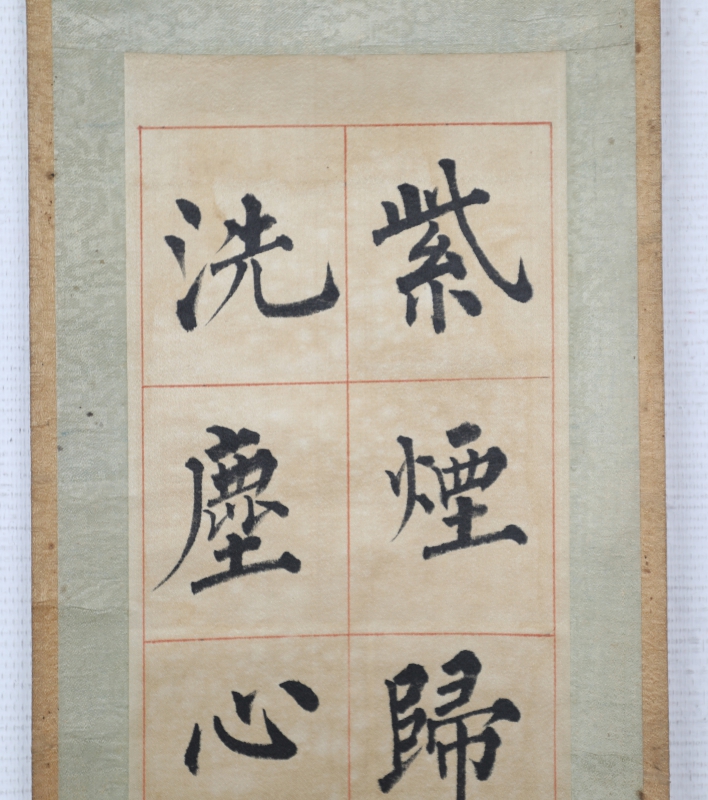 紫煙歸
洗塵心